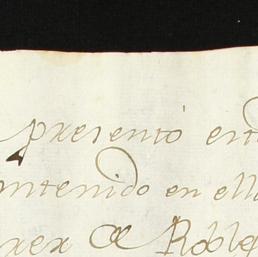 presento est
ntenido en ella
rex de Roble